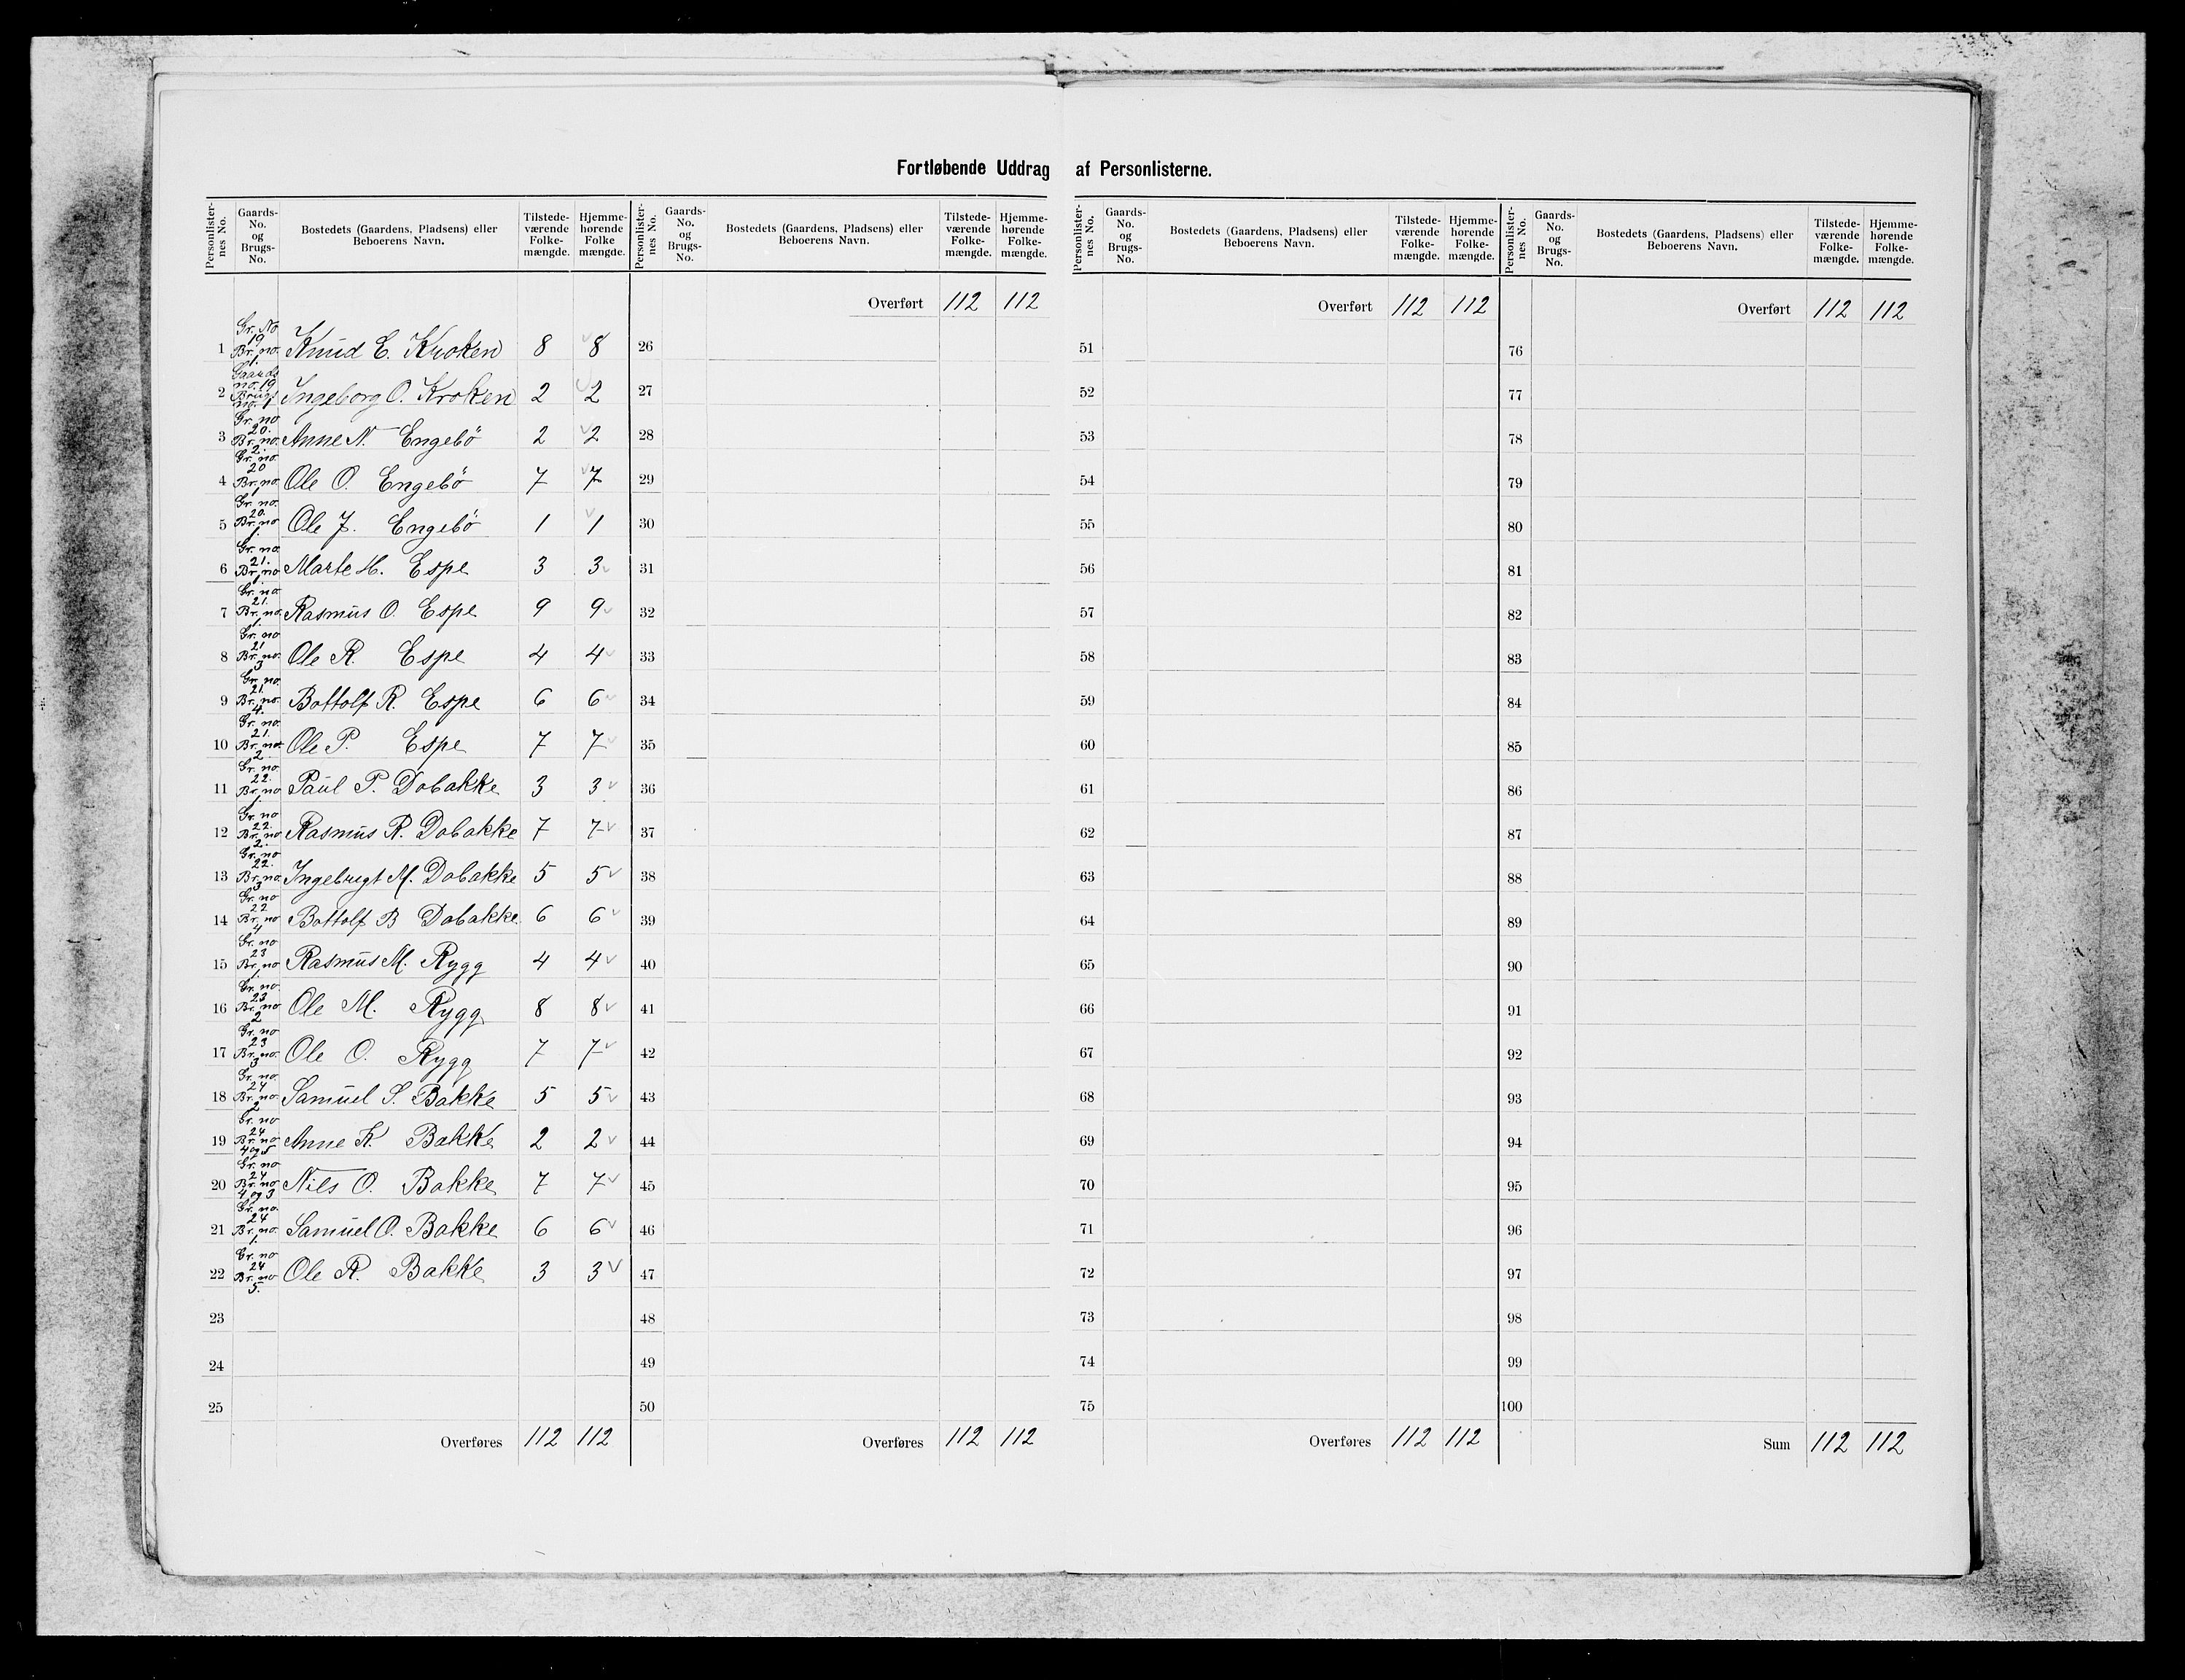 Fortløbende Uddrag af Personlisterne.
Personlister-nes No. | Gaards-No. og Brugs-No. | Bostedets (Gaardens, Pladsens) eller Beboerens Navn. | Tilstede-værende Folke-mængde. | Hjemme-hørende Folke mængde.
1 Gr. No 19 Br. no. 1. Knud E. Kroken 8 8
2 Gaards no. 19 Brugs no. 1 Ingeborg O. Kroken 2 2
3 Gr. no 20. Br. no. 2. Anne N. Engebö 2 2
4 Gr. no. 20 Br. no. 1 Ole O. Engebö 7 7
5 Gr. no. 20. Br. no 1. Ole J. Engebö 1 1
6 Gr. no. 21. Br. no 1. Marte H. Espe 3 3
7 Gr. no 21. Br. no. 1. Rasmus O. Espe 9 9
8 Gr. no 21 Br. no. 3 Ole R. Espe 4 4
9 Gr. no. 21. Br. no. 4. Bottolf R. Espe 6 6
10 Gr. no. 21. Br. no. 2 Ole P. Espe 7 7
11 Gr. no. 22. Br. no 1. Paul P. Dobakke 3 3
12 Gr. no 22. Br. no 2. Rasmus R. Dobakke 7 7
13 Gr. no 22. Br. no. 3 Ingebrigt M. Dobakke 5 5
14 Gr. no 22 Br. no 4 Bottolf B Dobakke. 6 6
15 Gr. no 23 Br. no 1. Rasmus M. Rygg 4 4
16 Gr. no. 23 Br. no 2 Ole M. Rygg 8 8
17 Gr. no 23 Br. no. 3 Ole O. Rygg 7 7
18 Gr. no. 24 Br. no. 2 Samuel S. Bakke 5 5
19 Gr. no 24 Br. no 4 og 5 Anne K Bakke 2 2
20 Gr. no 24 Br. no 4 og 3 Nils O. Bakke 7 7
21 Gr. no. 24 Br. no. 1. Samuel O. Bakke 6 6
22 Gr. no 24 Br. no 5. Ole R. Bakke 3 3
23
24
25
Overføres 112 112
Personlister-nes No. | Gaards-No. og Brugs-No. | Bostedets (Gaardens, Pladsens) eller Beboerens Navn. | Tilstede-værende Folke-mængde. | Hjemme-hørende Folke-mængde.
Overført 112 112
26
27
28
29
30
31
32
33
34
35
36
37
38
39
40
41
42
43
44
45
46
47
48
49
50
Overføres 112 112
Personlister-nes No. | Gaards-No. og Brugs-No. | Bostedets (Gaardens, Pladsens) eller Beboerens Navn. | Tilstede-værende Folke-mængde. | Hjemme-hørende Folke-mængde.
Overført 112 112
51
52
53
54
55
56
57
58
59
60
61
62
63
64
65
66
67
68
69
70
71
72
73
74
75
Overføres 112 112
Personlister-nes No. | Gaards-No. og Brugs-No. | Bostedets (Gaardens, Pladsens) eller Beboerens Navn. | Tilstede-værende Folke-mængde. | Hjemme-hørende Folke-mængde.
Overført 112 112
76
77
78
79
80
81
82
83
84
85
86
87
88
89
90
91
92
93
94
95
96
97
98
99
100
Sum 112 112